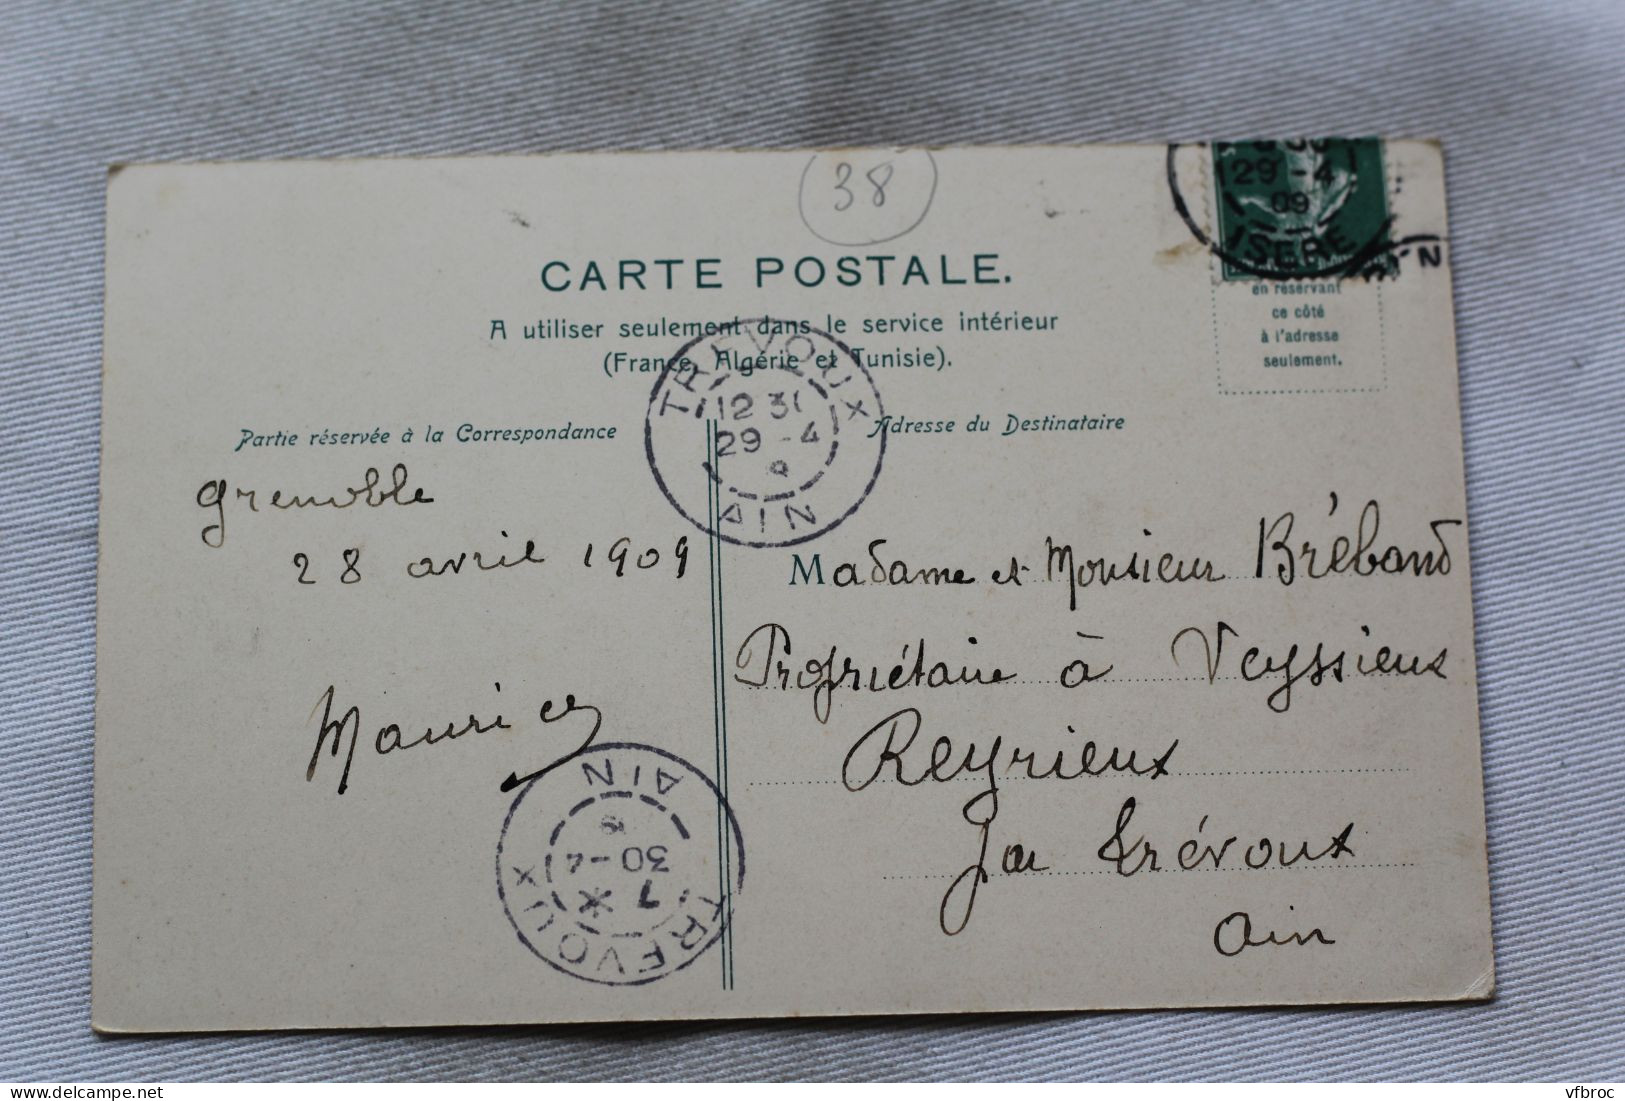 38
29 - 4
09
ISERE
CARTE POSTALE.
A utiliser seulement dans le service intérieur
(France, Algérie et Tunisie).
en réservant
ce côté
à l'adresse
seulement.
TREVOUX
12 30
29 - 4
AIN
Partie réservée à la Correspondance
Adresse du Destinataire
Grenoble
28 avril 1909
Maurice
Madame et Monsieur Bréband
Propriétaire à Veyssieux
Reyrieux
Par Trévoux
Ain
AIN
30 - 4
7 *
TREVOUX
delcampe.net
vfbroc